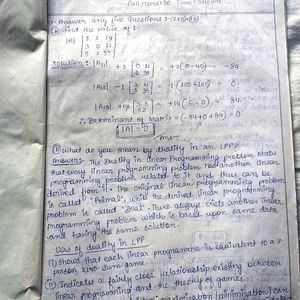 Full marks:80 Time:3 Hours
1. Answer any five Questions :- (2x5)=10
Find the value of :-
|A| 2 1 14
3 0 21
5 2 35
Solution :- |A11| +2 0 21 2 35 +2(0-42) = -84
|A12| -1 3 21 5 35 -1(105-105) = 0
|A13| +14 3 0 5 2 +14(6-0) = 84
∴ Determinant of Matrix = (-84+0+84) = 0
|A| = 0
Ans
(b) What do you mean by duality in an LPP?
Answer: The Duality in linear Programming problem states
that every linear programming problem has another linear
programming problem related to it and thus can be
derived from it. The original linear programming problem
is called "Primal", while the derived linear programming
problem is called "Dual". There always exists another linear
programming problem which is based upon same data
and having the same solution.
Uses of duality in LPP
(i) Shows that each linear programme is equivalent to a 2-
person zero sum game.
(ii) Indicates a fairly close relationship existing between
linear programming and the theory of games.
maximization (minimization) can